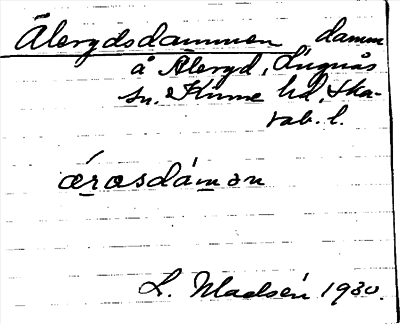 Ålerydsdammen damm
å Åleryd, Lugnås
sn. Kinne hd, Ska-
rab. l.
órosdámən
L. Madsén 1930.